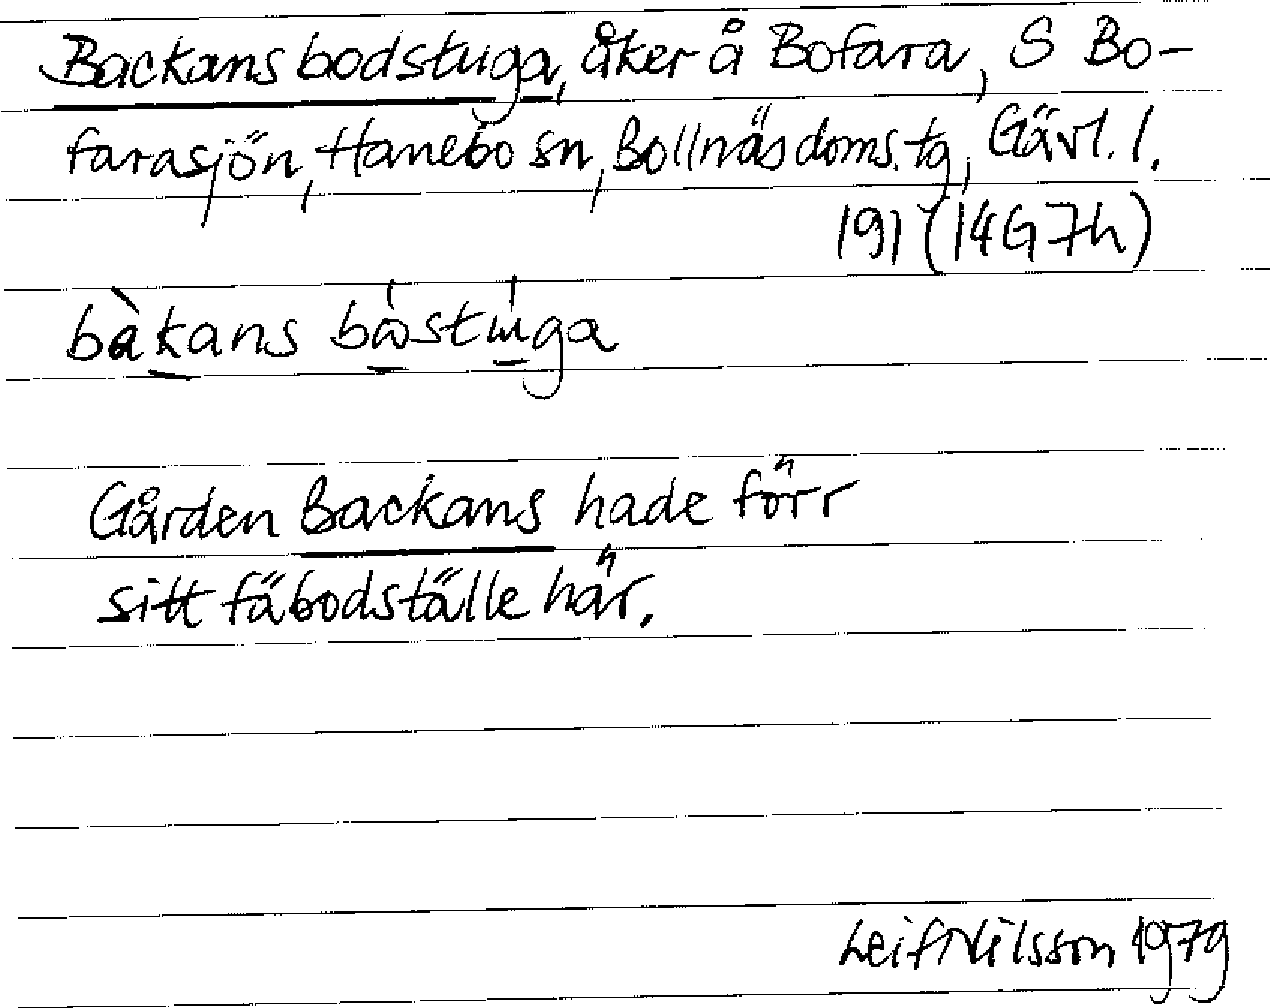 Backans bodstuga, åker å Bofara, S Bo-
farasjön, Hanebo sn, Bollnäs doms.tg, Gävl. l.
191 (14G 7h)
bàkans bɷ́stɯ́ga
Gården Backans hade förr
sitt fäbodställe här.
Leif Nilsson 1979